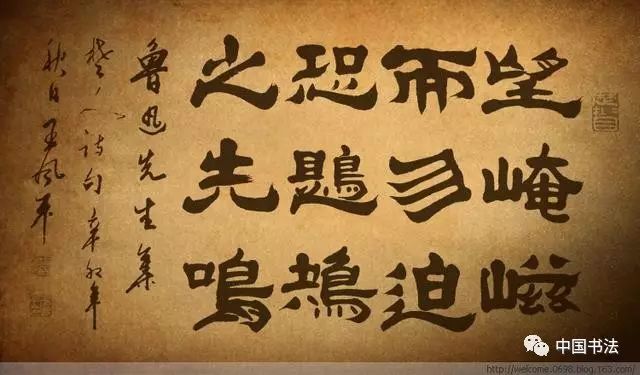 望崦嵫
而勿迫
恐鶗鴂
之先鳴
魯迅先生集
楚人诗句辛卯年
秋日王风平
中国书法
http://welcome.0698.blog.163.com/